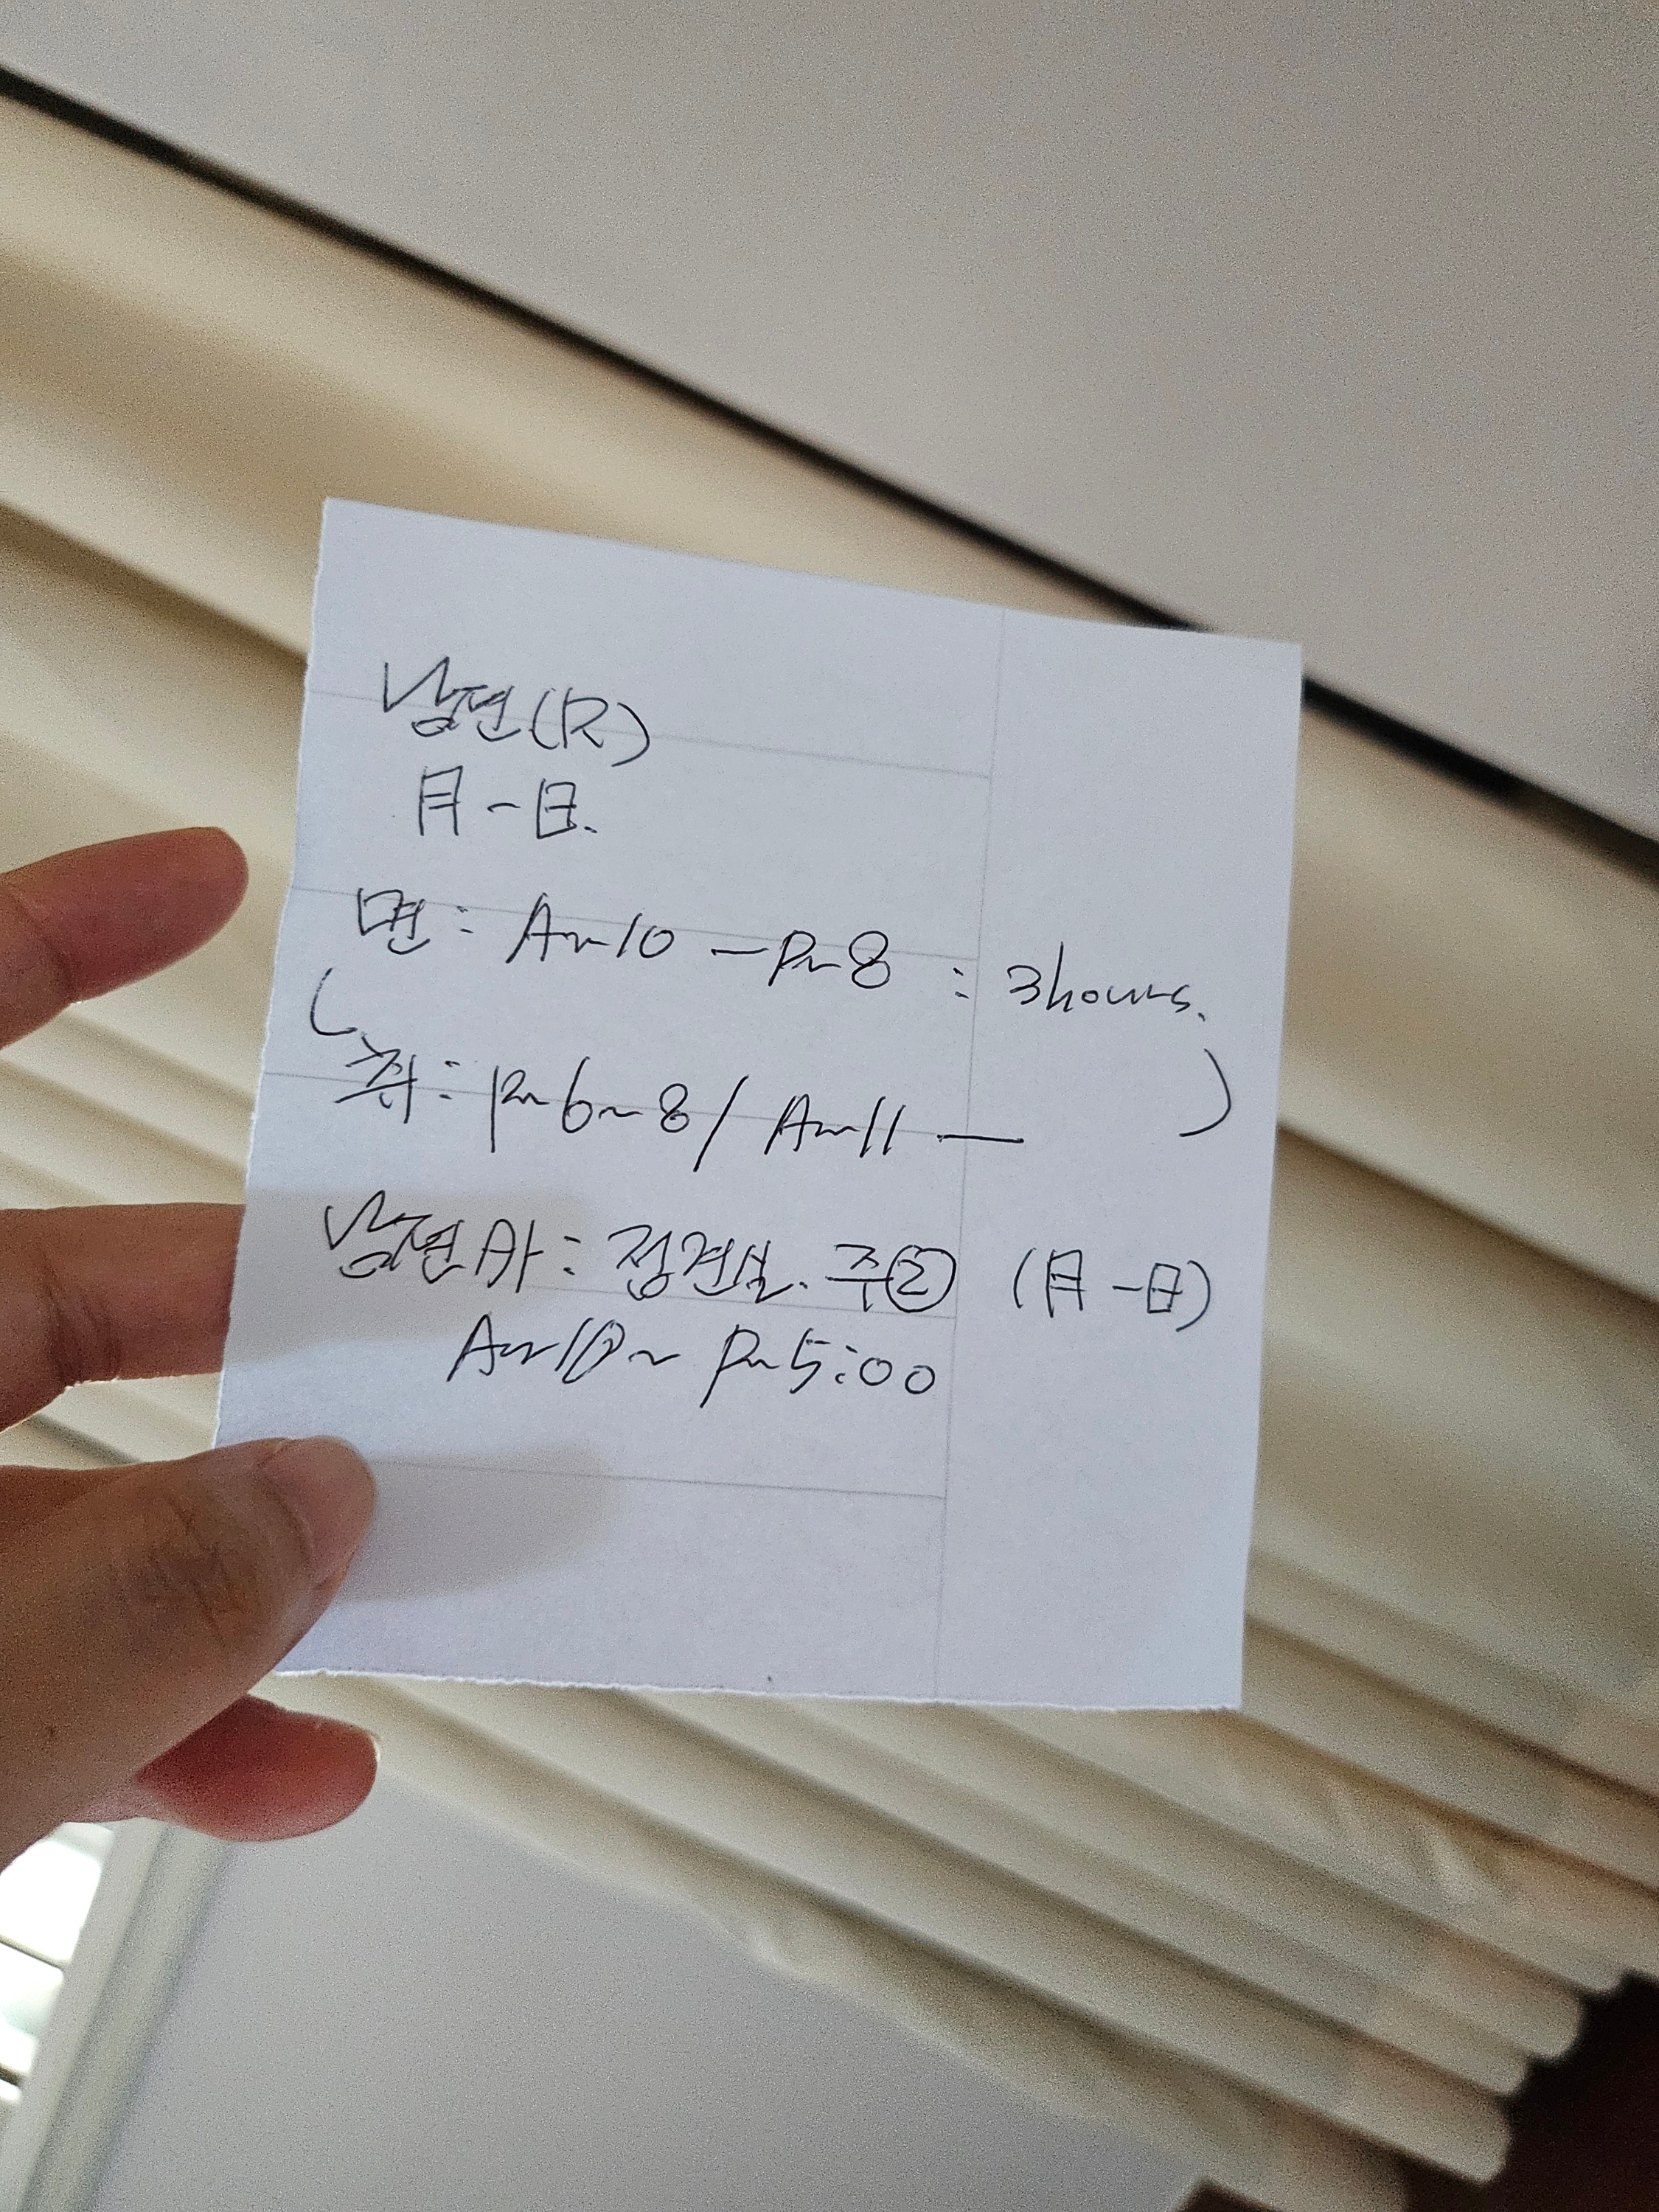 남편(R)
月-日.
면: Am10 - Pm8 : 3hours.
( 취: Pm6~8 / Am11 — )
남편 A: 정견실. 주② (月-日)
Am10~ Pm5:00